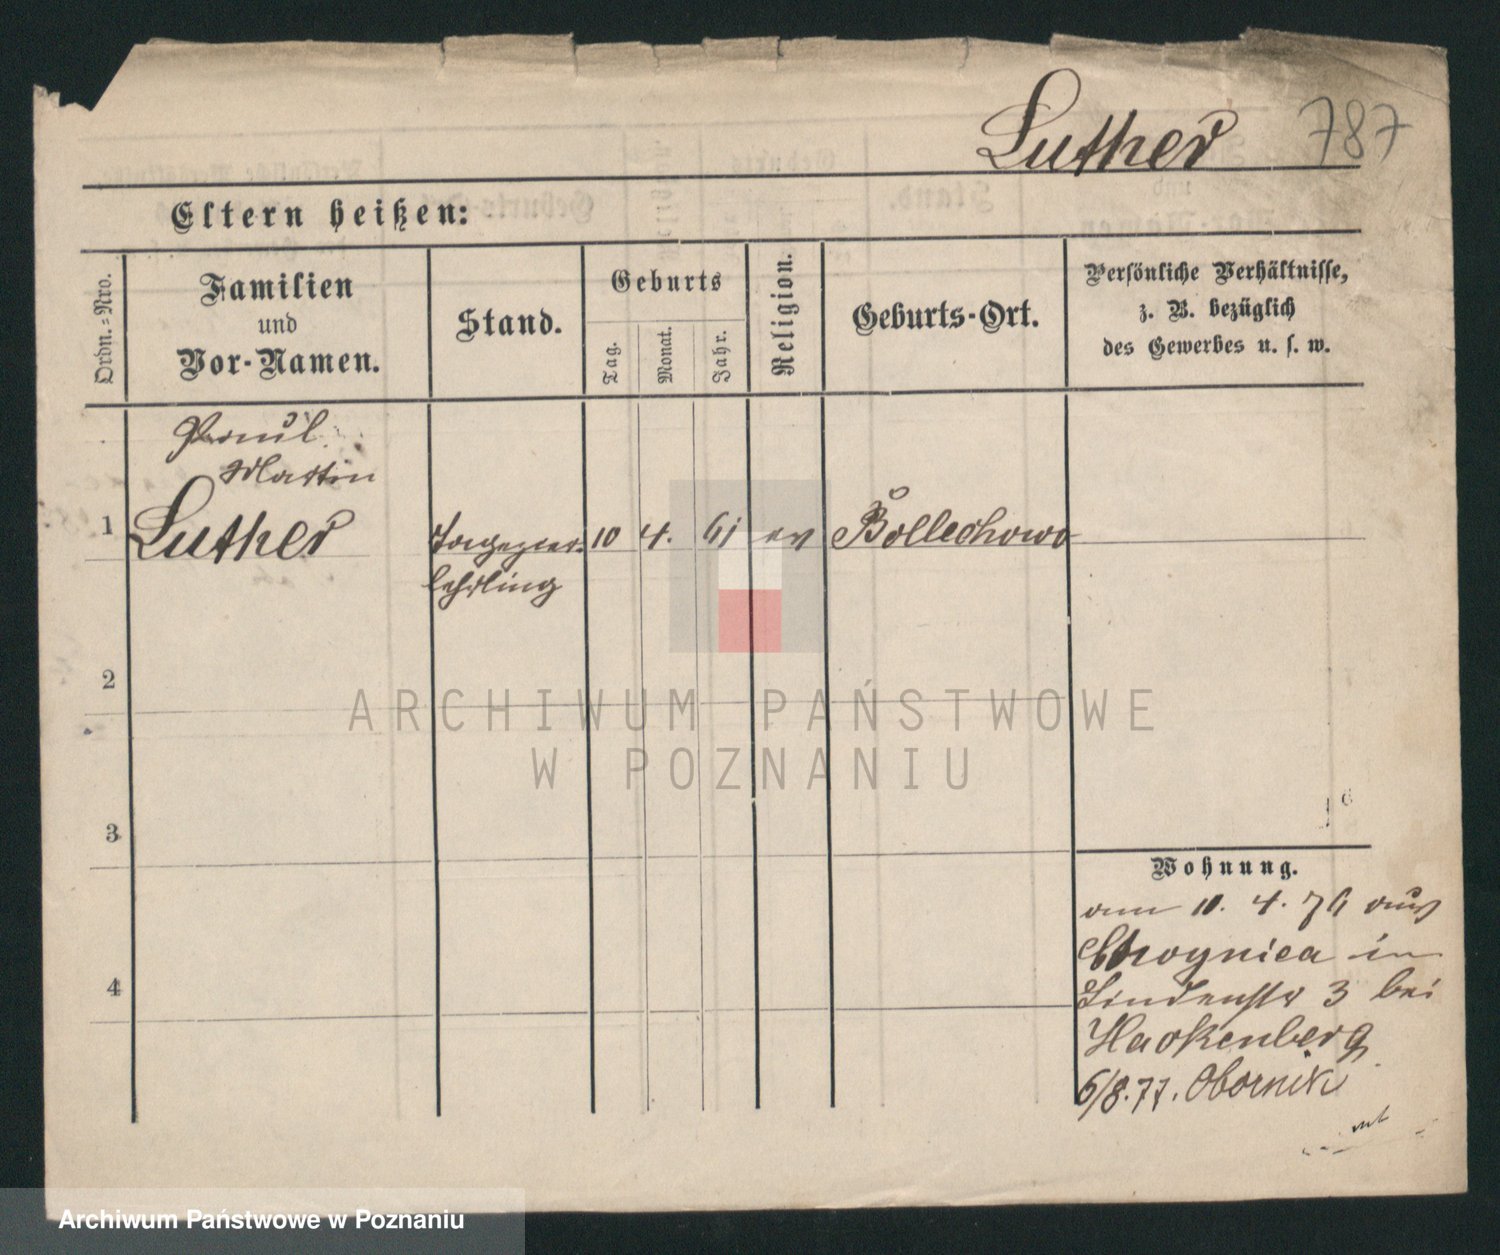 Luther 787
Eltern heißen:
Ordn.-Nro.
Familien
und
Vor-Namen.
Stand.
Geburts
Tag.
Monat.
Jahr.
Religion.
Geburts-Ort.
Persönliche Verhältnisse,
z. B. bezüglich
des Gewerbes u. s. w.
Paul
Martin
1 Luther Tapezier- 10 4. 61 ev Bollechowo
lehrling
2
3
4
Wohnung.
am 10. 4. 76 aus
in
Lindenstr 3 bei
Hackenberg
6/8.77. Obornik
ARCHIWUM PAŃSTWOWE
W POZNANIU
Archiwum Państwowe w Poznaniu